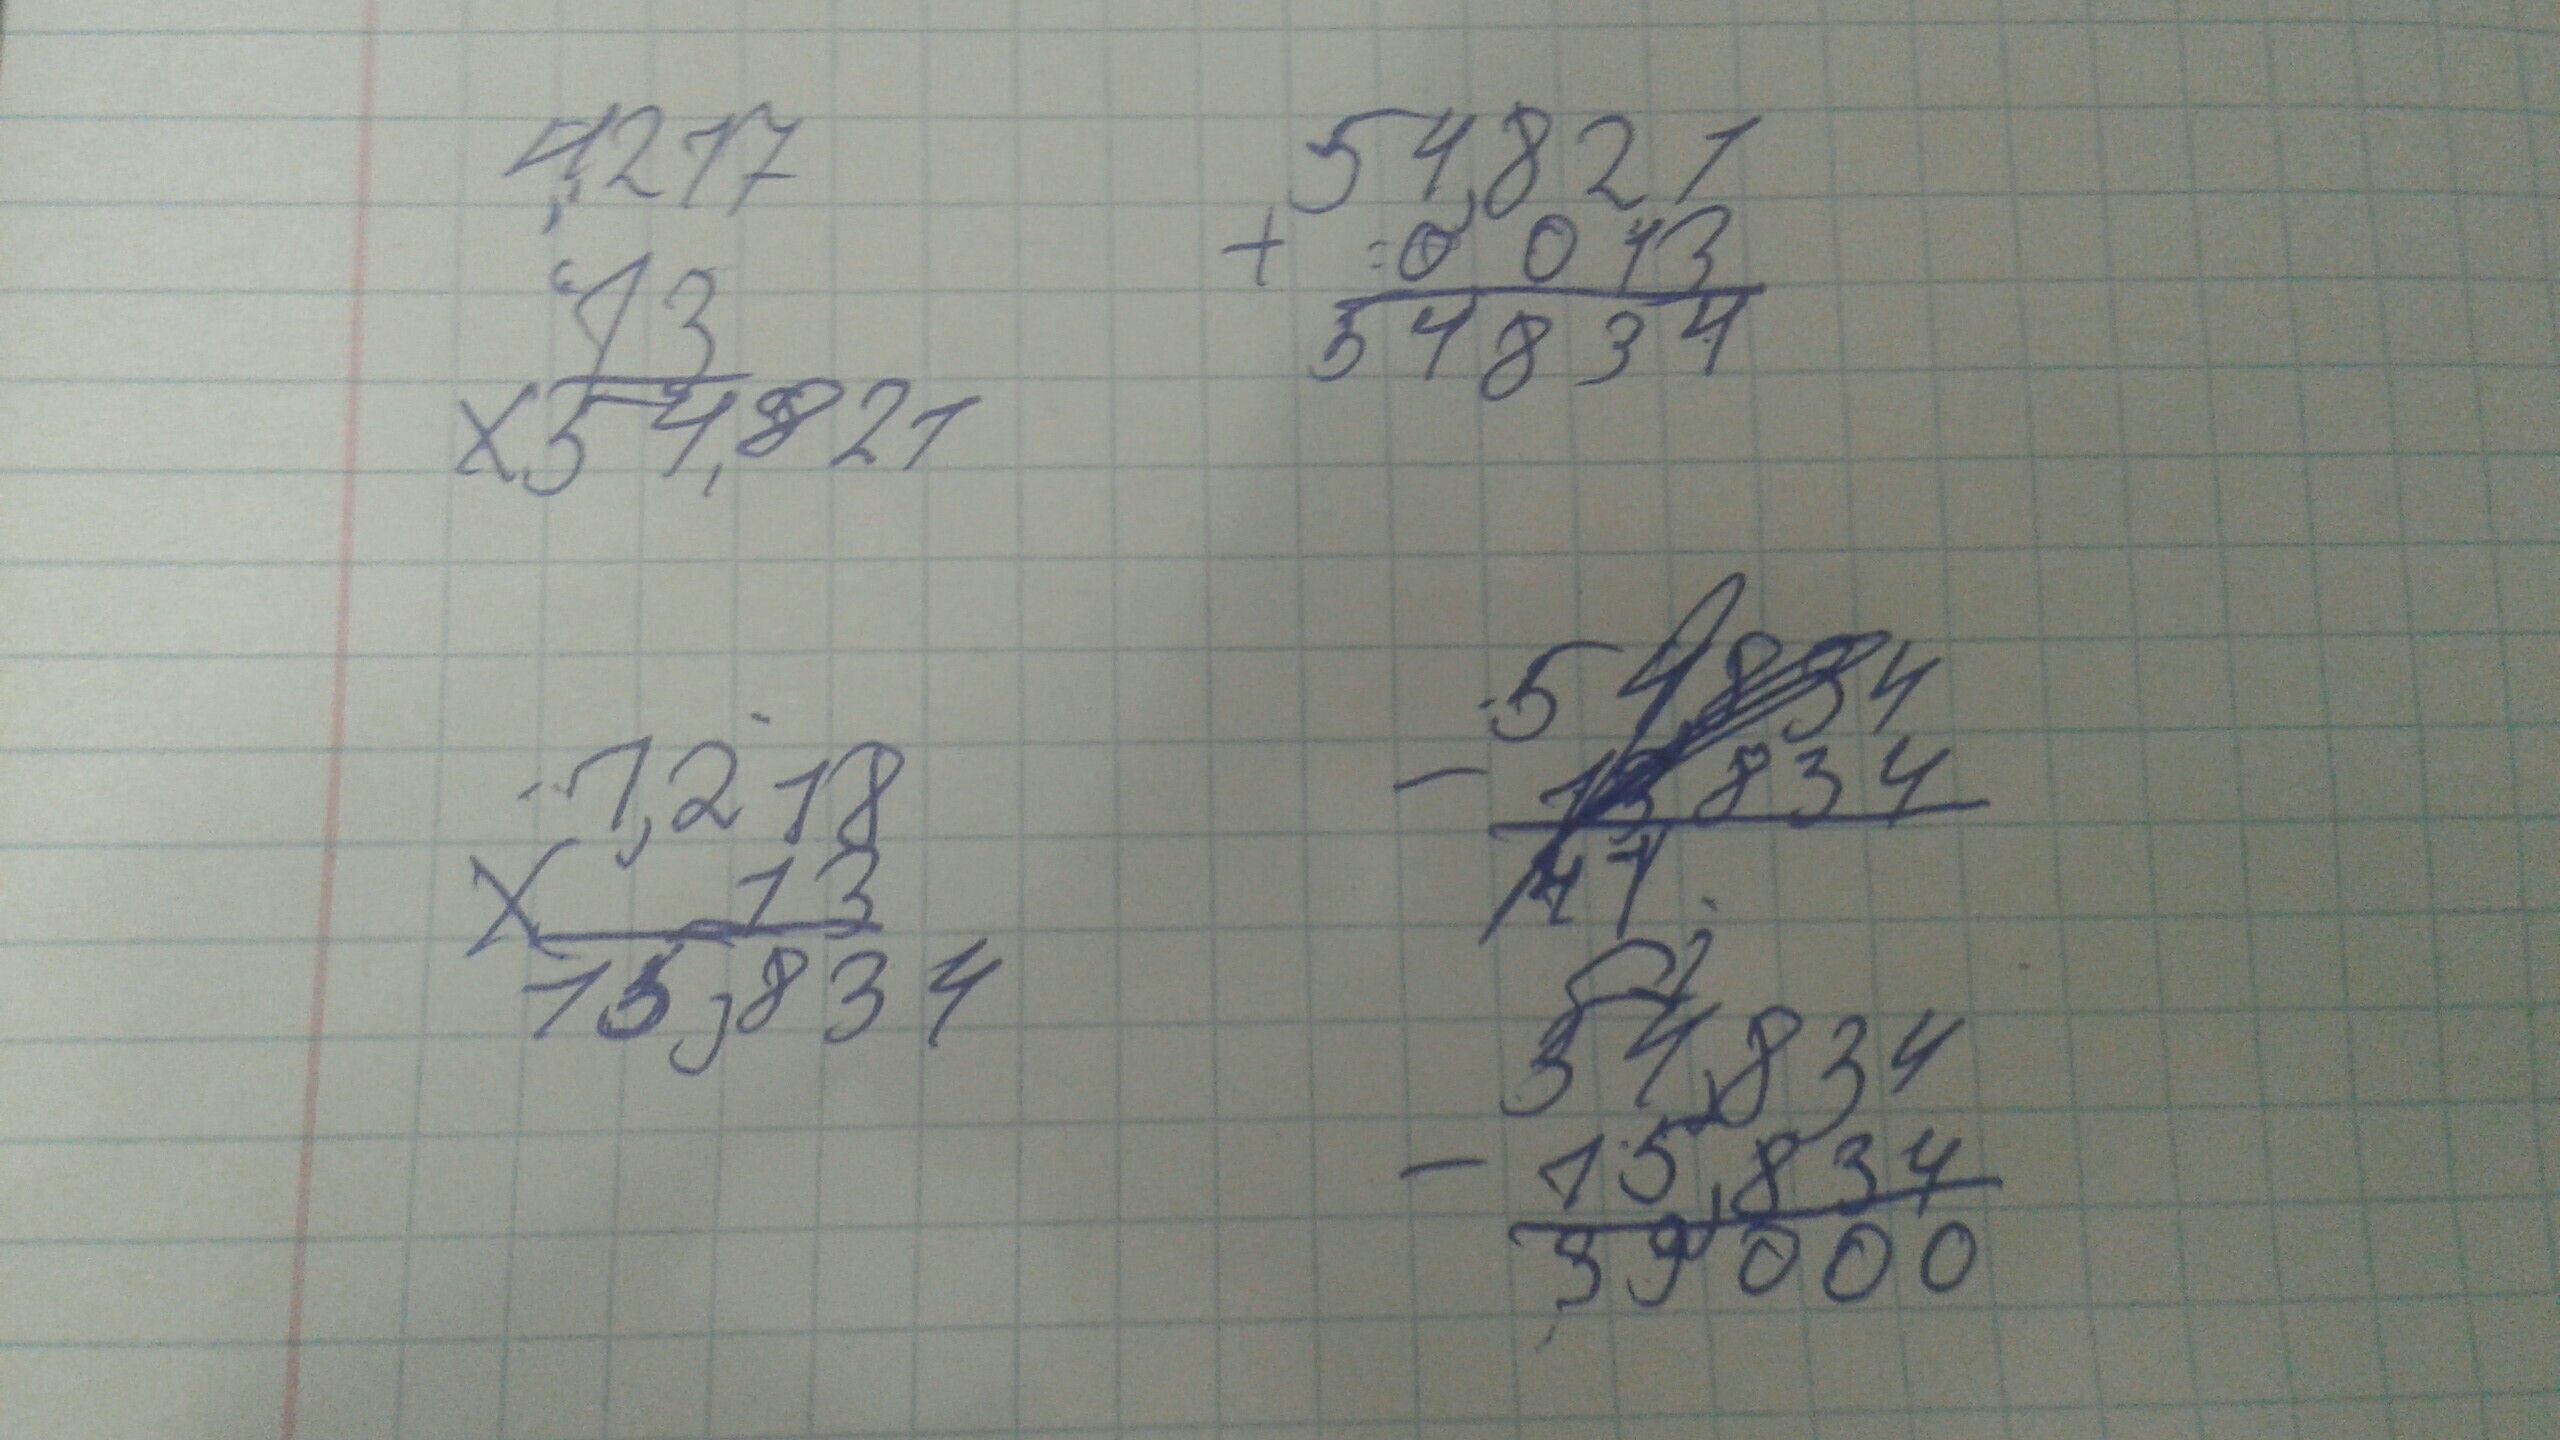 4,217
13
×54,821
54,821
+ 0 013
54834
1,218
× 13
15,834
54834
- 13834
41
54,834
- 15,834
39000